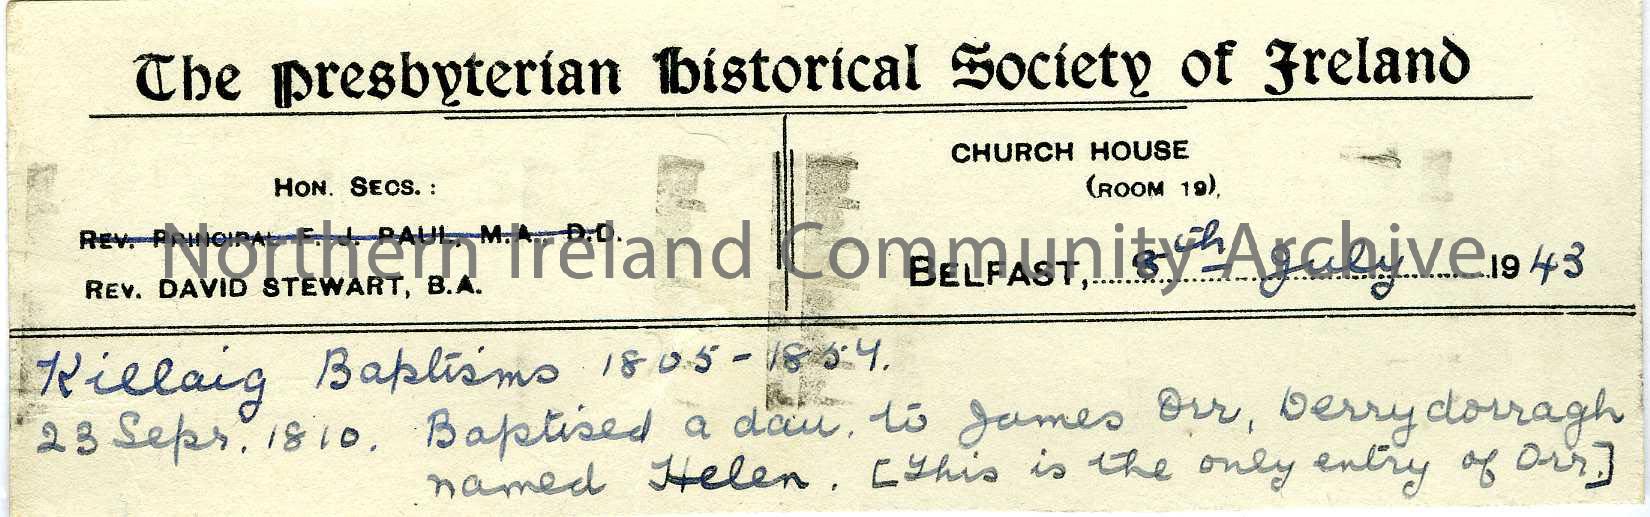 The Presbyterian Historical Society of Ireland
HON. SECS.:
REV. PRINCIPAL F. J. PAUL, M.A., D.D.
REV. DAVID STEWART, B.A.
CHURCH HOUSE
(ROOM 19),
BELFAST, 8th July 1943
Northern Ireland Community Archive
Killaig Baptisms 1805-1854.
23 Sepr. 1810. Baptised a dau. to James Orr, Derrydorragh
named Helen. [This is the only entry of Orr.]